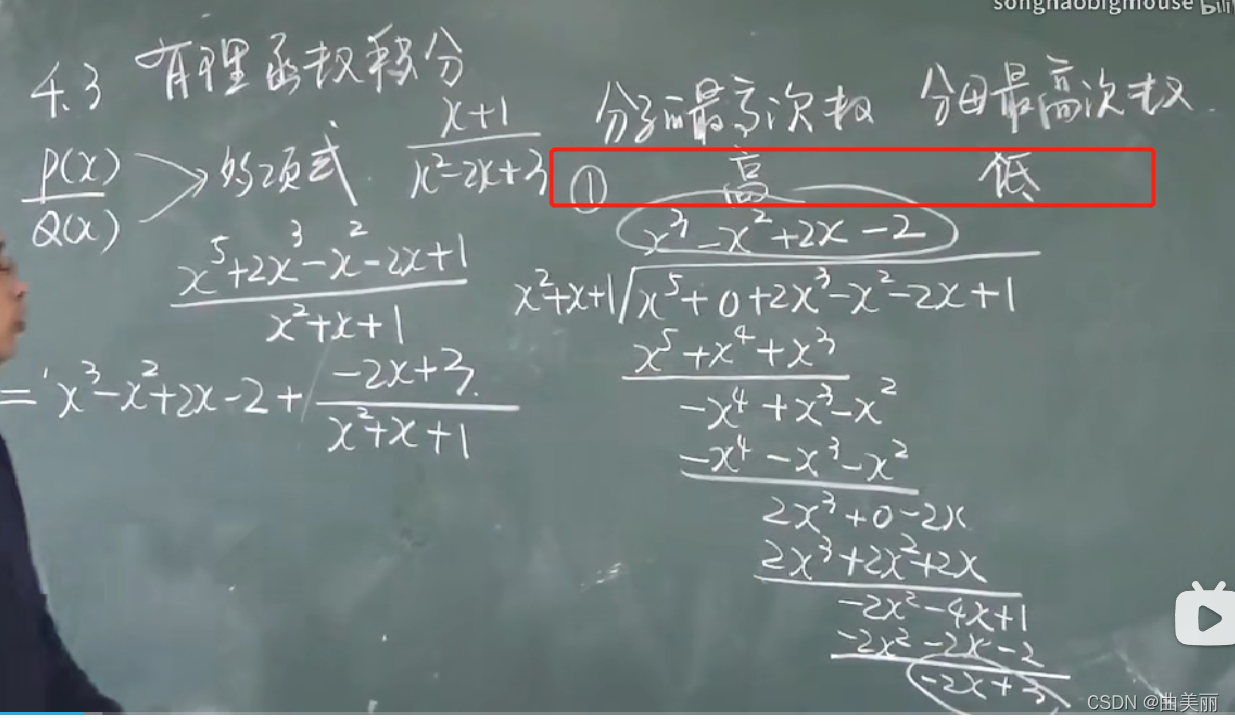 songhaobigmouse bili
4.3 有理函数积分
分子的最高次数 分母最高次数
P(x)
Q(x)
多项式
x+1
x²-2x+3
① 高 低
x⁵+2x³-x²-2x+1
x²+x+1
= x³-x²+2x-2+
-2x+3
x²+x+1
x³-x²+2x-2
x²+x+1 x⁵+0+2x³-x²-2x+1
x⁵+x⁴+x³
-x⁴+x³-x²
-x⁴-x³-x²
2x³+0-2x
2x³+2x²+2x
-2x²-4x+1
-2x²-2x-2
-2x+3
CSDN @曲美丽